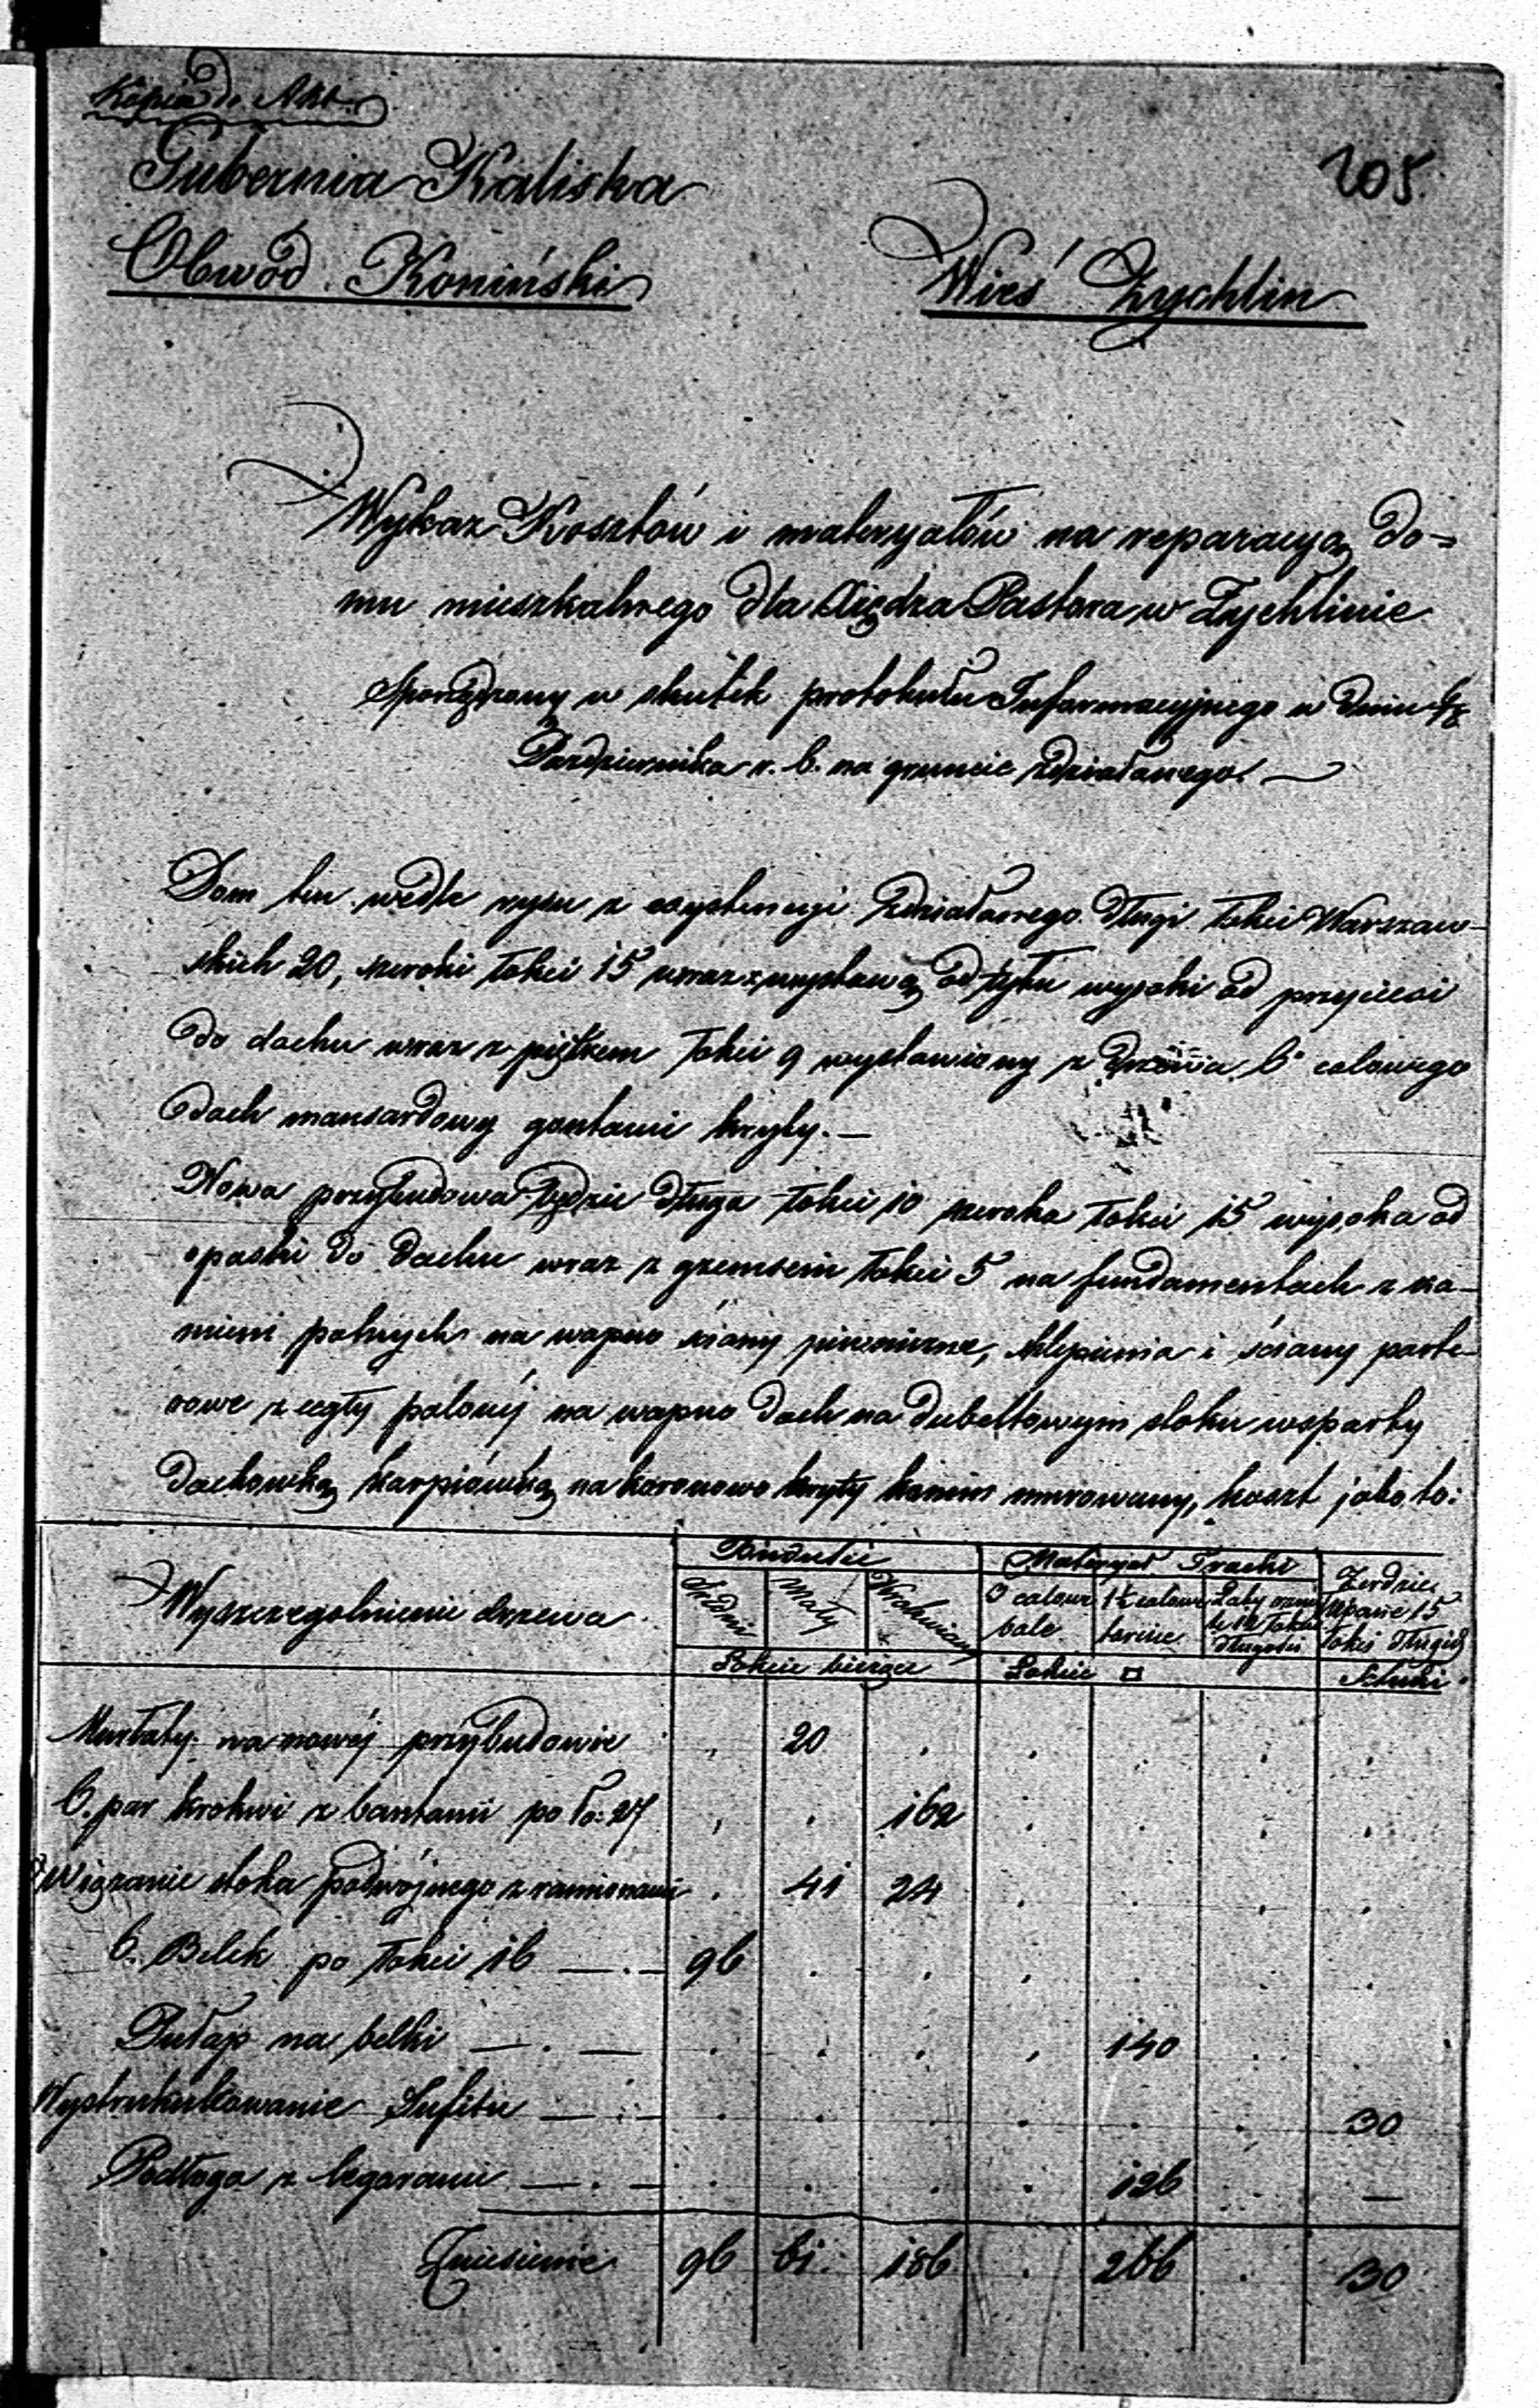 Kopia do Akt.
205.
Gubernia Kaliska
Obwód Koniński
Wieś Żychlin
Wykaz Kosztów i materyałów na reparacyą do=
mu mieszkalnego dla Xiędza Pastora w Żychlinie
Sporządzony w skutek protokułu Informacyjnego w dniu
Pazdziernika r. b. na gruncie zdziałanego. —
Dom ten wedle rysu z exystencyi zdziałanego długi łokci Warszaw-
skich 20, szeroki łokci 15 wraz z wystawą od tyłu wysoki od przyciesi
do dachu wraz z piętrem łokci 9 wystawiony z drzewa 6" calowego
dach mansardowy gontami kryty. —
Nowa przybudowa będzie długa łokci 10 szeroka łokci 15 wysoka od
opaski do dachu wraz z gzemsem łokci 5 na fundamentach z ka-
mieni polnych na wapno ściany piwniczne, sklepienia i ściany parte-
rowe z cegły palonéj na wapno dach na dubeltowym stolcu wsparty
dachowką karpiówką na koronowo kryty komin murowany, koszt jako to:
Wyszczegolnienie drzewa
Budulec
Materyał Tracki
Żerdzie
łupane 15
łokci długie
Sredni
Mały
Krokwiowy
3 calowe
bale
1½ calowe
tarcice
Łaty
12 łokci
długości
Łokcie bieżące
Łokcie □
Sztuki
Murłaty na nowéj przybudowie . 20 . . . . .
6. par krokwi z bantami po ło: 27 . . 162 . . . .
Wiązanie stolca podwójnego z ramionami . 41 24 . . . .
6. Belek po łokci 16 — . — 96 . . . . . .
Pułap na belki — . — . . . . 140 . .
Wystrukulcowanie Sufitu — . — . . . . . . 30
Podłoga z legarami — . — . . . . 126 . —
Zniesienie 96 61. 186 . 266 . 30